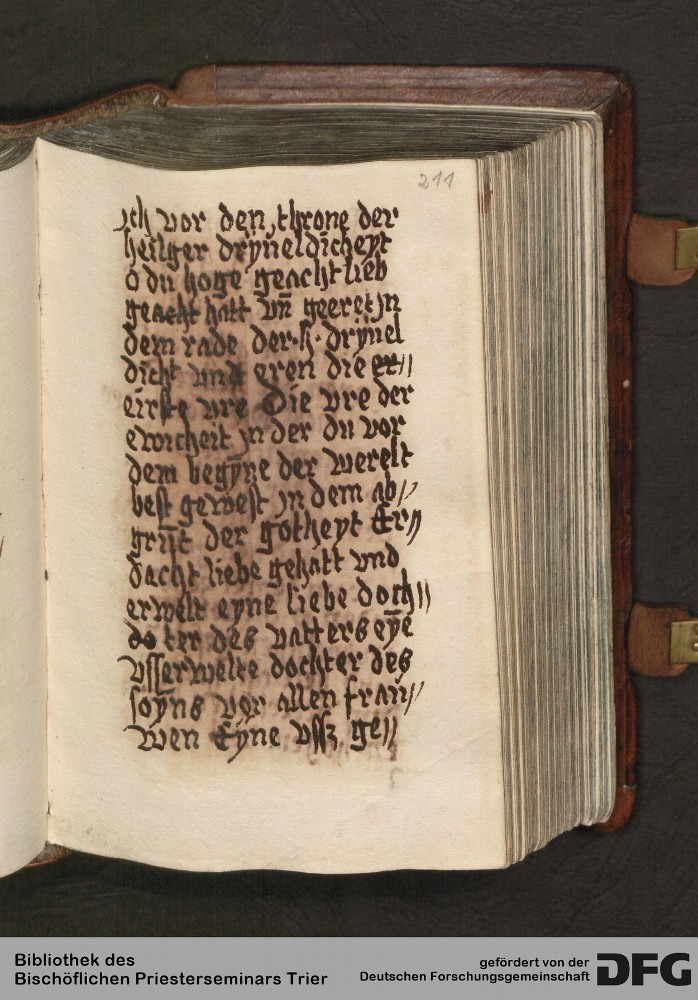 211
jch vor den throne der
heilger drÿueldicheyt
o du hoge geacht lieb
geacht hatt vn̄ geeret jn
dem rade der·h·drÿuel
dicht vnd eren die er//
eirste vre Die vre der
ewicheit jn der du vor
dem begȳne der werelt
best gewest jn dem ab//
grūt der gotheyt Er//
dacht liebe gehatt vnd
erwelt eyne liebe doch//
do ter des vatters eȳe
vsserwelte dochter des
soyns vor allen frau//
wen Eyne vssz ge//
Bibliothek des
Bischöflichen Priesterseminars Trier
gefördert von der
Deutschen Forschungsgemeinschaft
DFG